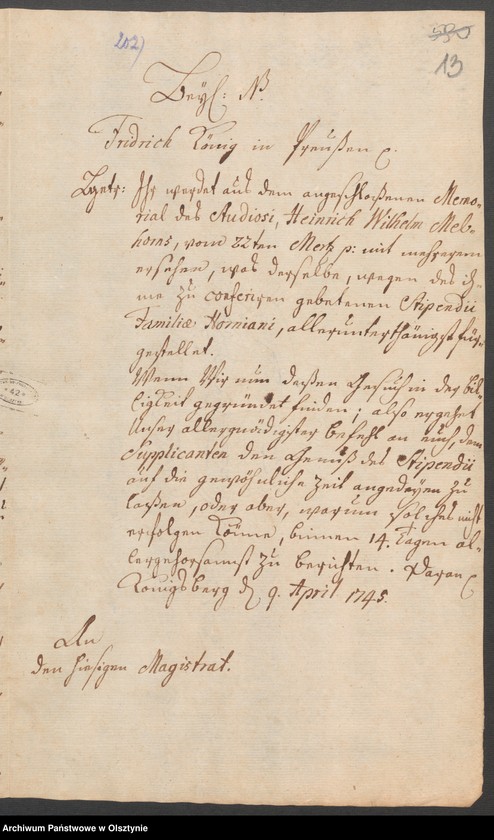 202)
13
Beÿl: N.
Fridrich König in Preußen
Ihr werdet aus dem angeschloßenen Memo-
rial des Studiosi, Heinrich Wilhelm Mel-
horns, vom 22ten Mertz p: mit mehrerem
ersehen, was derselbe, wegen des ih-
me zu conferiren gebetenen Stipendii
Familiæ Horniani, allerunterthänigst für-
gestellet.
Wenn Wir nun deßen Gesuch in der bil-
ligkeit gegründet finden; also ergehet
Unser allergnädigster befehl an euch, dem
Supplicanten den Genuß des Stipendii
auf die gewöhnliche Zeit angedeÿen zu
laßen, oder aber, warum solches nicht
erfolgen könne, binnen 14. Tagen al-
lergehorsamst zu berichten. Daran
Königsberg d 9. April 1745.
An
den hiesigen Magistrat.
Archiwum Państwowe w Olsztynie